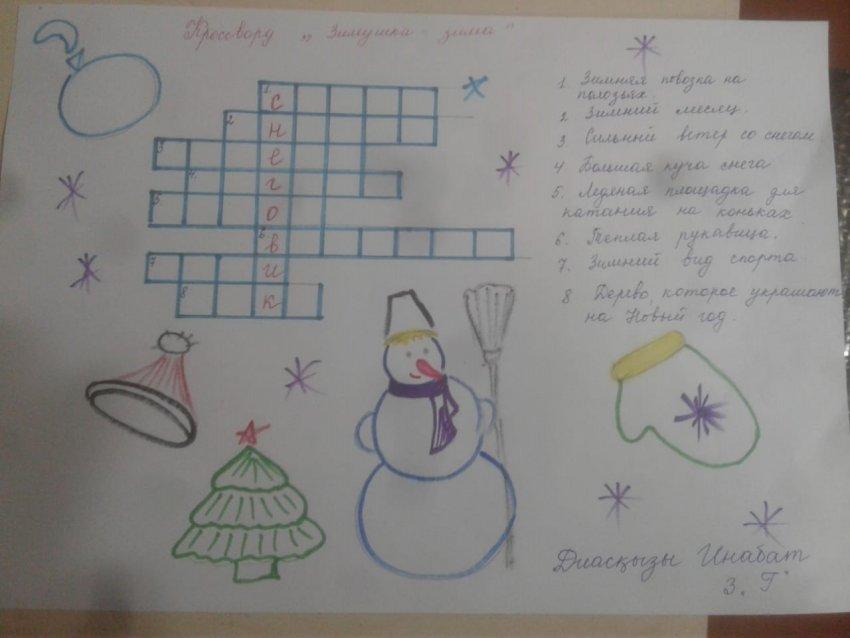 Кроссворд „Зимушка - зима"
1 Зимняя повозка на
полозьях.
2 Зимний месяц.
3 Сильний ветер со снегом
4 Большая куча снега
5. Ледяная площадка для
катания на коньках
6. Теплая рукавица.
7. Зимний вид спорта
8 Дерево, которое украшают
на Новый год.
1
с
2
н
3
е
4
г
5
о
6
в
7
и
8
к
Диасқызы Инабат
3 „Г"